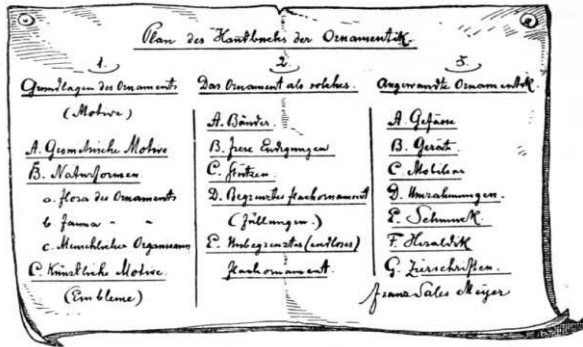 Plan des Handbuchs der Ornamentik.
1.
Grundlagen des Ornaments
(Motive)
A. Geometrische Motive
B. Naturformen
a. Flora des Ornaments
b Fauna " "
c. Menschlicher Organismus
C. Künstliche Motive.
(Embleme)
2.
Das Ornament als solches.
A. Bänder.
B. Freie Endigungen
C. Stützen.
D. Begrenztes Flachornament
(Füllungen.)
E. Unbegrenztes (endloses)
Flachornament.
3.
Angewandte Ornamentik.
A. Gefässe
B. Gerät.
C. Mobiliar
D. Umrahmungen.
E. Schmuck.
F. Heraldik
G. Zierschriften.
Franz Sales Meyer